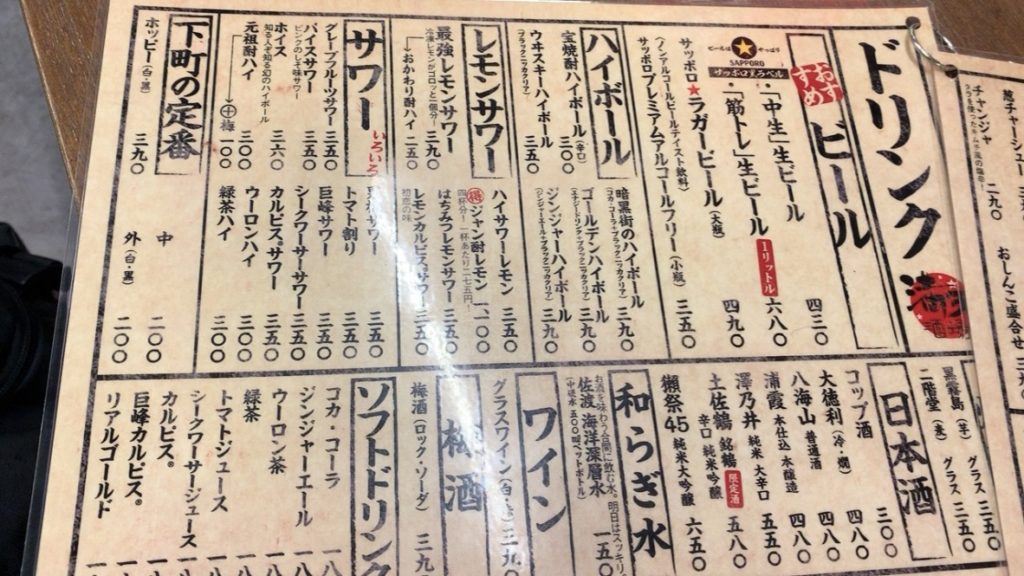 ドリンク
ビール
おすすめ
ビールは やっぱり
SAPPORO
サッポロ生ラベル
・「中生」生ビール 四三〇
・「筋トレ」生ビール 1リットル 六八〇
サッポロ★ラガービール(大瓶) 四九〇
(ノンアルコールビールテイスト飲料)
サッポロプレミアムアルコールフリー(小瓶) 三五〇
ハイボール
宝焼酎ハイボール(辛口) 三〇〇
ウヰスキーハイボール 三五〇
(ブラックニッカクリア)
暗黒街のハイボール 三九〇
(コカ・コーラ+ブラックニッカクリア)
ゴールデンハイボール 三九〇
(エナジードリンク+ブラックニッカクリア)
ジンジャーハイボール 三九〇
(ジンジャーエール+ブラックニッカクリア)
レモンサワー
最強レモンサワー 三九〇
冷凍レモンがゴロッと一個分!
→おかわり酎ハイ 二五〇
ハイサワーレモン 三五〇
得ジャン酎レモン 一、一〇〇
四杯分!一杯あたり二七五円!
はちみつレモンサワー 三五〇
レモンカルピスサワー 三五〇
初恋の味
サワー
いろいろ
グレープフルーツサワー 三五〇
バイスサワー 三五〇
ピンクのしそ味サワー
ホイス 三六〇
知る人ぞ知る幻のハイボール
元祖酎ハイ 三〇〇
→㊉梅 一〇〇
サワー 三五〇
トマト割り 三五〇
巨峰サワー 三五〇
シークワーサーサワー 三五〇
カルピス®サワー 三五〇
ウーロンハイ 三〇〇
緑茶ハイ 三〇〇
下町の定番
ホッピー(白・黒) 三九〇
中 二〇〇
外(白・黒) 二〇〇
餃子チャーシュー 三
チャンジャ 二九〇
おしんこ盛合せ 三
黒霧島(芋) グラス 三五〇
二階堂(麦) グラス 三五〇
日本酒
コップ酒 三〇〇
大徳利(冷・燗) 四八〇
八海山 普通酒 四八〇
浦霞 本仕込 本醸造 四八〇
澤乃井 純米 大辛口 五五〇
土佐鶴 銘鶴 限定酒 五八〇
辛口 純米吟醸
獺祭45 純米大吟醸 六五〇
和らぎ水
お酒を味わう合間に飲む水。明日はスッキリ
佐渡 海洋深層水 一五〇
(中味 五〇〇㎖ペットボトル)
ワイン
グラスワイン(白・赤) 三九〇
梅酒
梅酒(ロック・ソーダ) 三九
ソフトドリンク
コカ・コーラ 一八
ジンジャーエール 一八
ウーロン茶 一八
緑茶 一八
トマトジュース 一八
シークワーサージュース 一八
カルピス® 一八
巨峰カルピス® 一八
リアルゴールド 一八